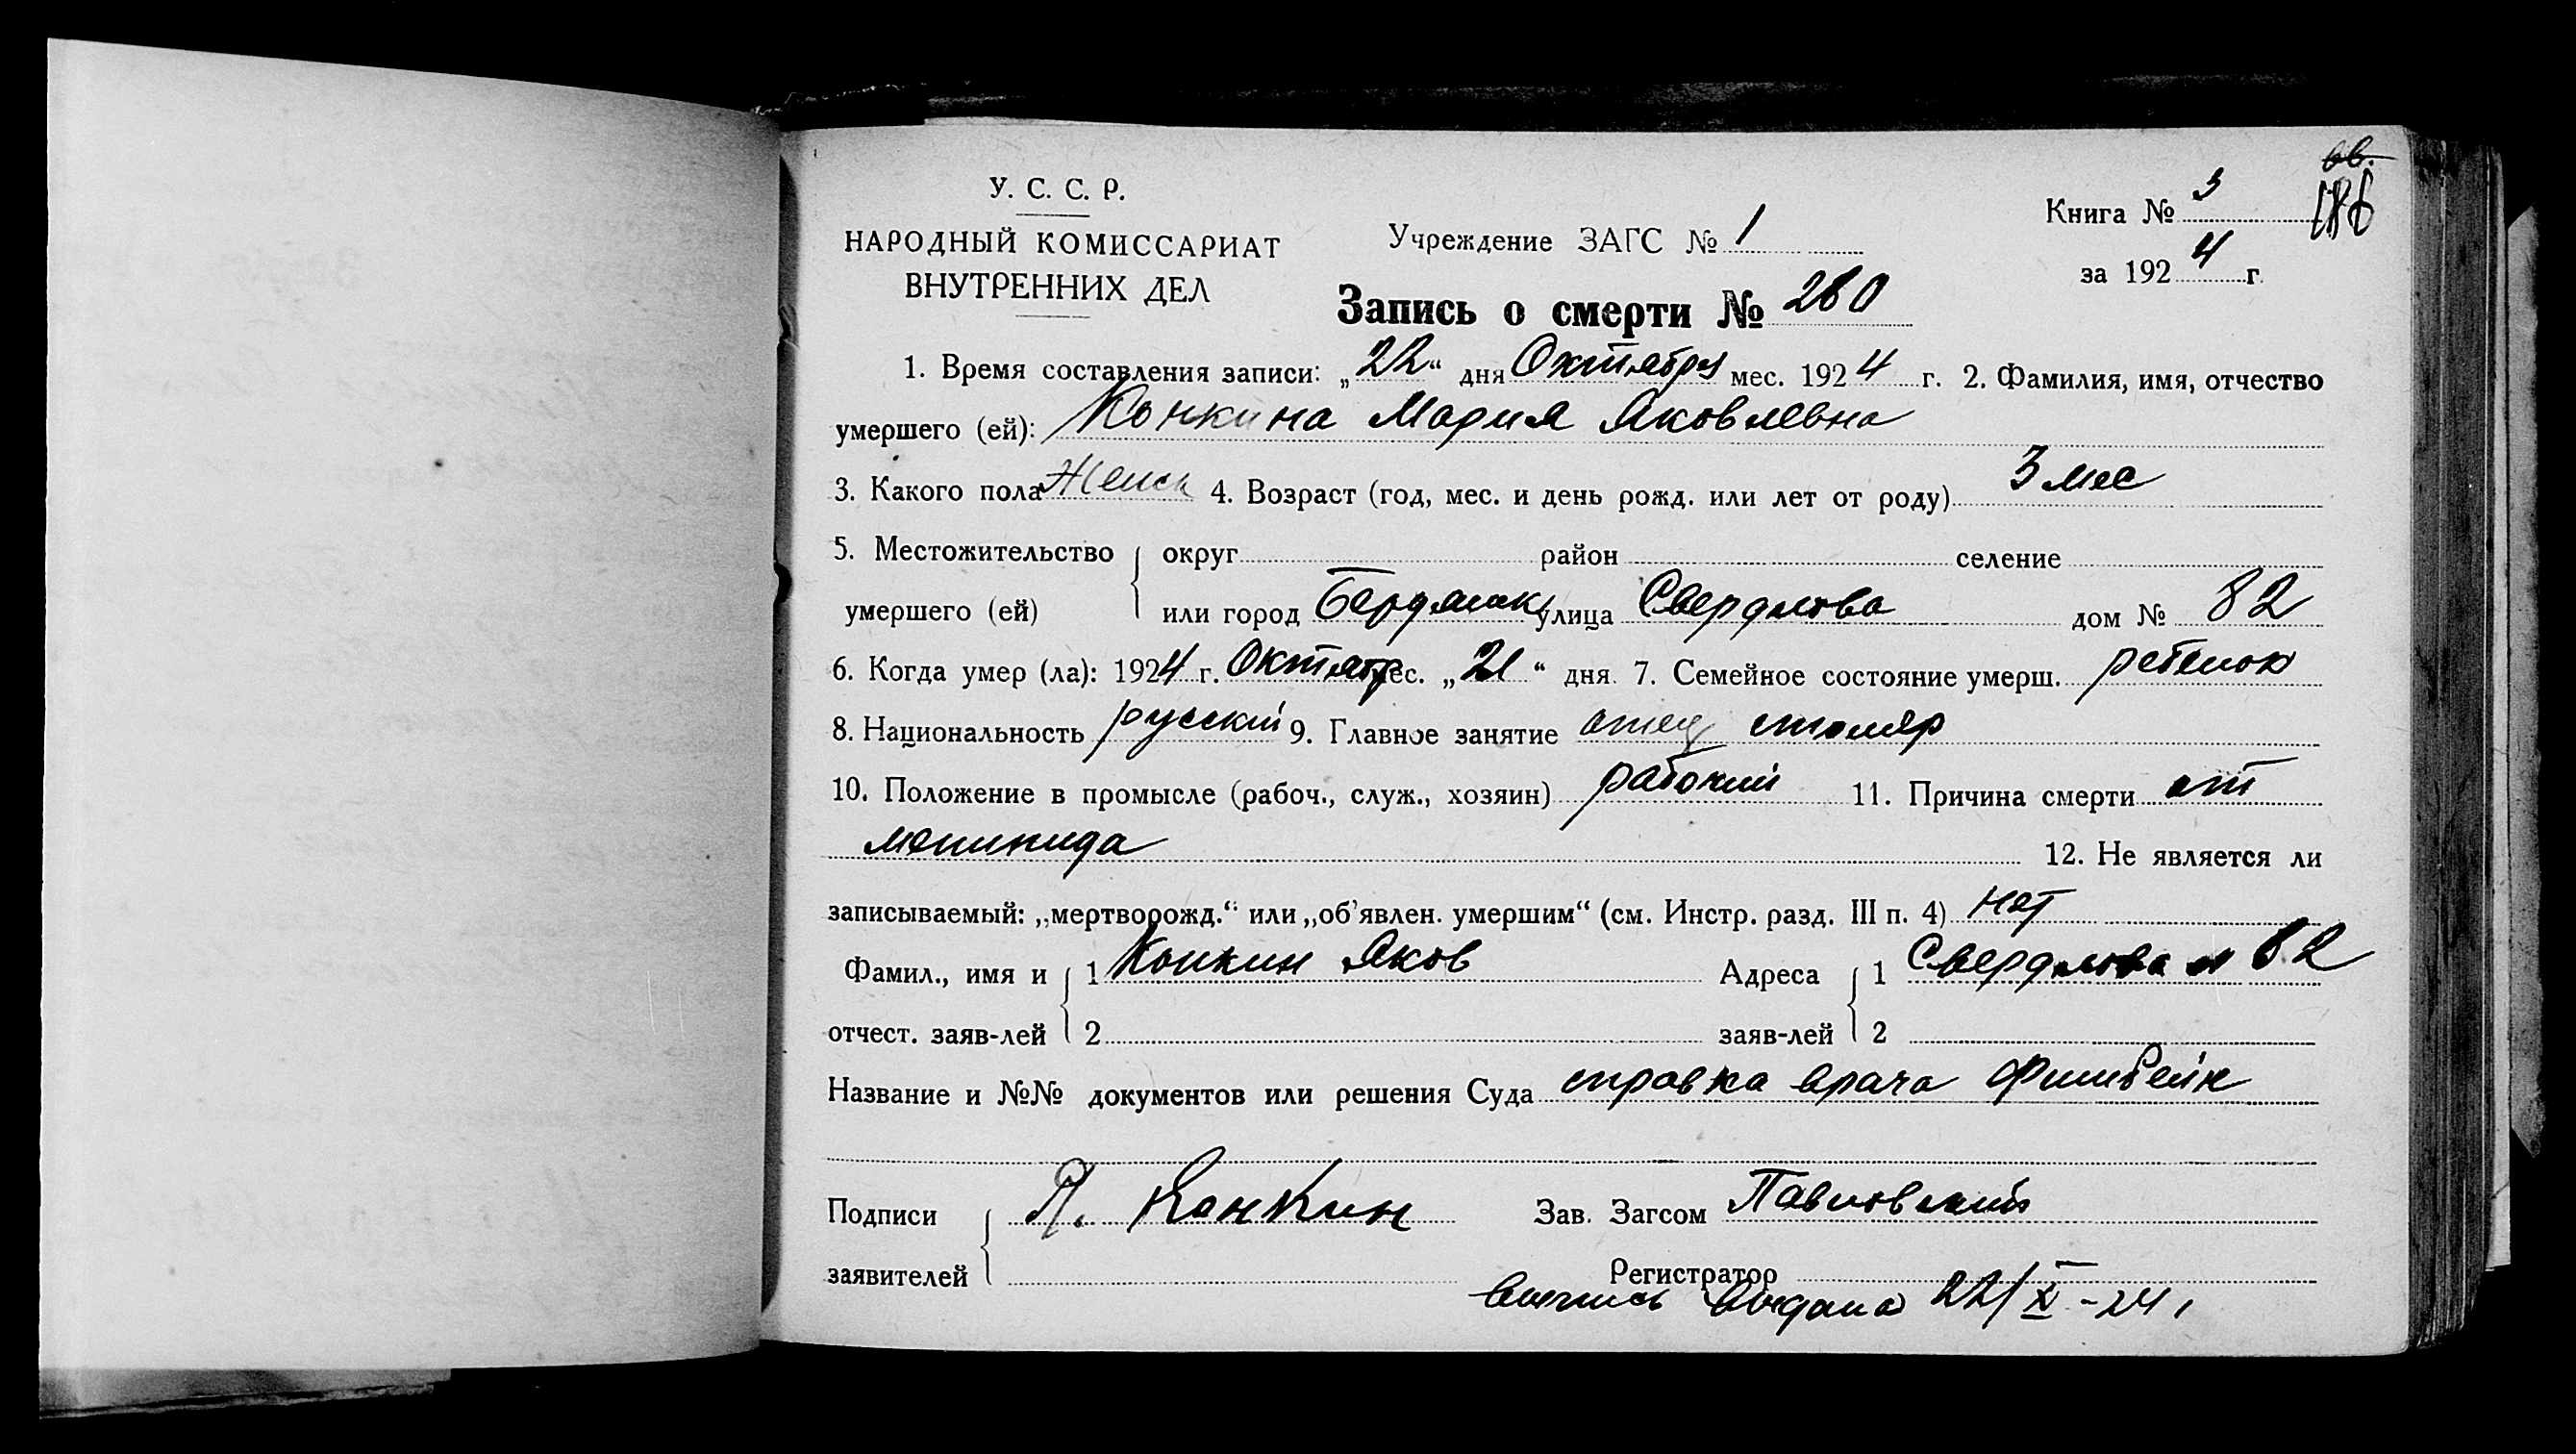 вв.
186
У. С. С. Р.
НАРОДНЫЙ КОМИССАРИАТ
ВНУТРЕННИХ ДЕЛ
Учреждение ЗАГС № 1
Книга № 3
за 1924 г.
Запись о смерти № 260
1. Время составления записи: „22“ дня Октября мес. 1924 г. 2. Фамилия, имя, отчество
умершего (ей): Конкина Мария Яковлевна
3. Какого пола Женск 4. Возраст (год, мес. и день рожд. или лет от роду) 3 мес
5. Местожительство округ район селение
умершего (ей) или город Бердянск улица Свердлова дом № 82
6. Когда умер (ла): 1924 г. Октябр мес. „21“ дня 7. Семейное состояние умерш. ребенок
8. Национальность русский 9. Главное занятие отец столяр
10. Положение в промысле (рабоч., служ., хозяин) рабочий 11. Причина смерти от
менингида
12. Не является ли
записываемый: „мертворожд.“ или „об'явлен. умершим“ (см. Инстр. разд. III п. 4) нет
Фамил., имя и 1 Конкин Яков Адреса 1 Свердлова 82
отчест. заяв-лей 2 заяв-лей 2
Название и №№ документов или решения Суда справка врача
Подписи Я. Конкин Зав. Загсом Павловский
заявителей Регистратор
выпись выдана 22/X-24